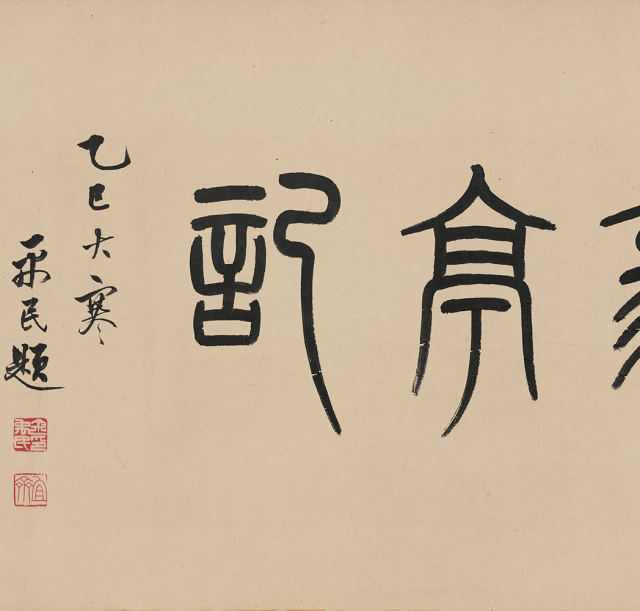 亭記
乙巳大寒
民題